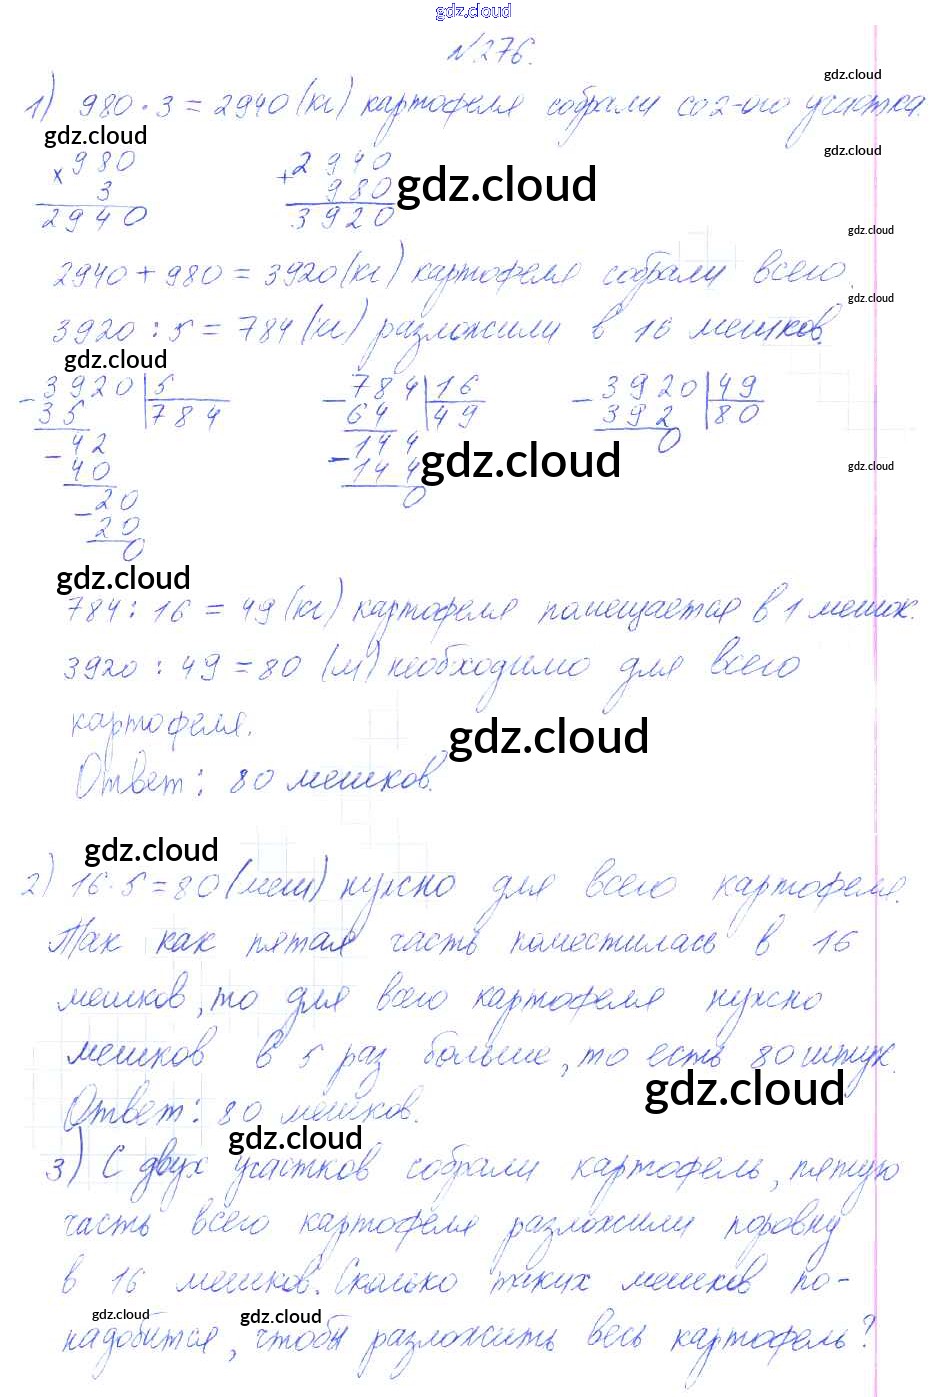 gdz.cloud
№276.
gdz.cloud
1) 980 · 3 = 2940 (кг) картофеля собрали со 2-ого участка.
gdz.cloud
gdz.cloud
× 980 + 2940
3 980
gdz.cloud
2940 3920
gdz.cloud
2940 + 980 = 3920 (кг) картофеля собрали всего.
gdz.cloud
3920 : 5 = 784 (кг) разложили в 16 мешков.
gdz.cloud
- 3920 | 5 - 784 | 16 - 3920 | 49
35 784 64 49 392 80
- 42 - 144 0
gdz.cloud
gdz.cloud
40 144
- 20 0
20
0
gdz.cloud
784 : 16 = 49 (кг) картофеля помещается в 1 мешок.
3920 : 49 = 80 (м) необходимо для всего
картофеля.
gdz.cloud
Ответ: 80 мешков.
gdz.cloud
2) 16 · 5 = 80 (меш) нужно для всего картофеля.
Так как пятая часть поместилась в 16
мешков, то для всего картофеля нужно
мешков в 5 раз больше, то есть 80 штук.
gdz.cloud
Ответ: 80 мешков.
gdz.cloud
3) С двух участков собрали картофель, пятую
часть всего картофеля разложили поровну
в 16 мешков. Сколько таких мешков по-
gdz.cloud
gdz.cloud
надобится, чтобы разложить весь картофель?